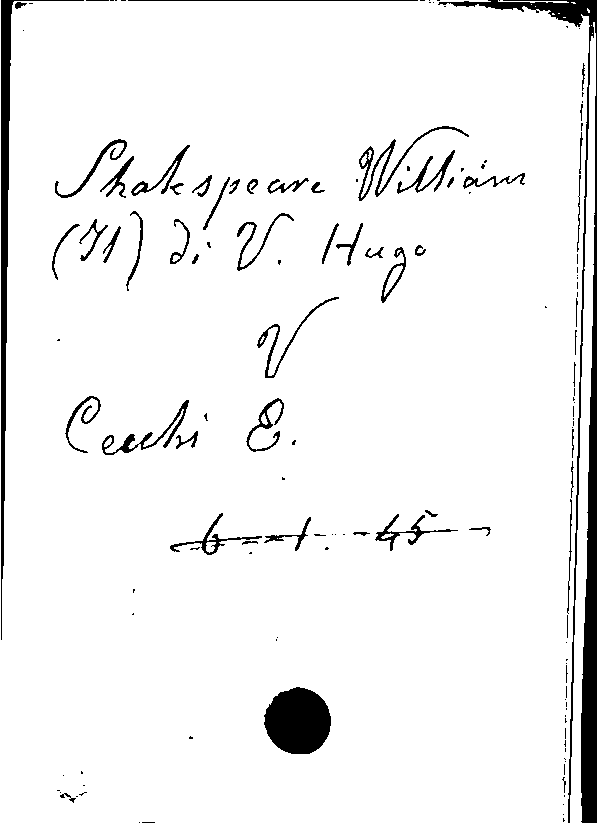 Shakespeare William
(Il) di V. Hugo
V
Cecchi E.
6-1-45